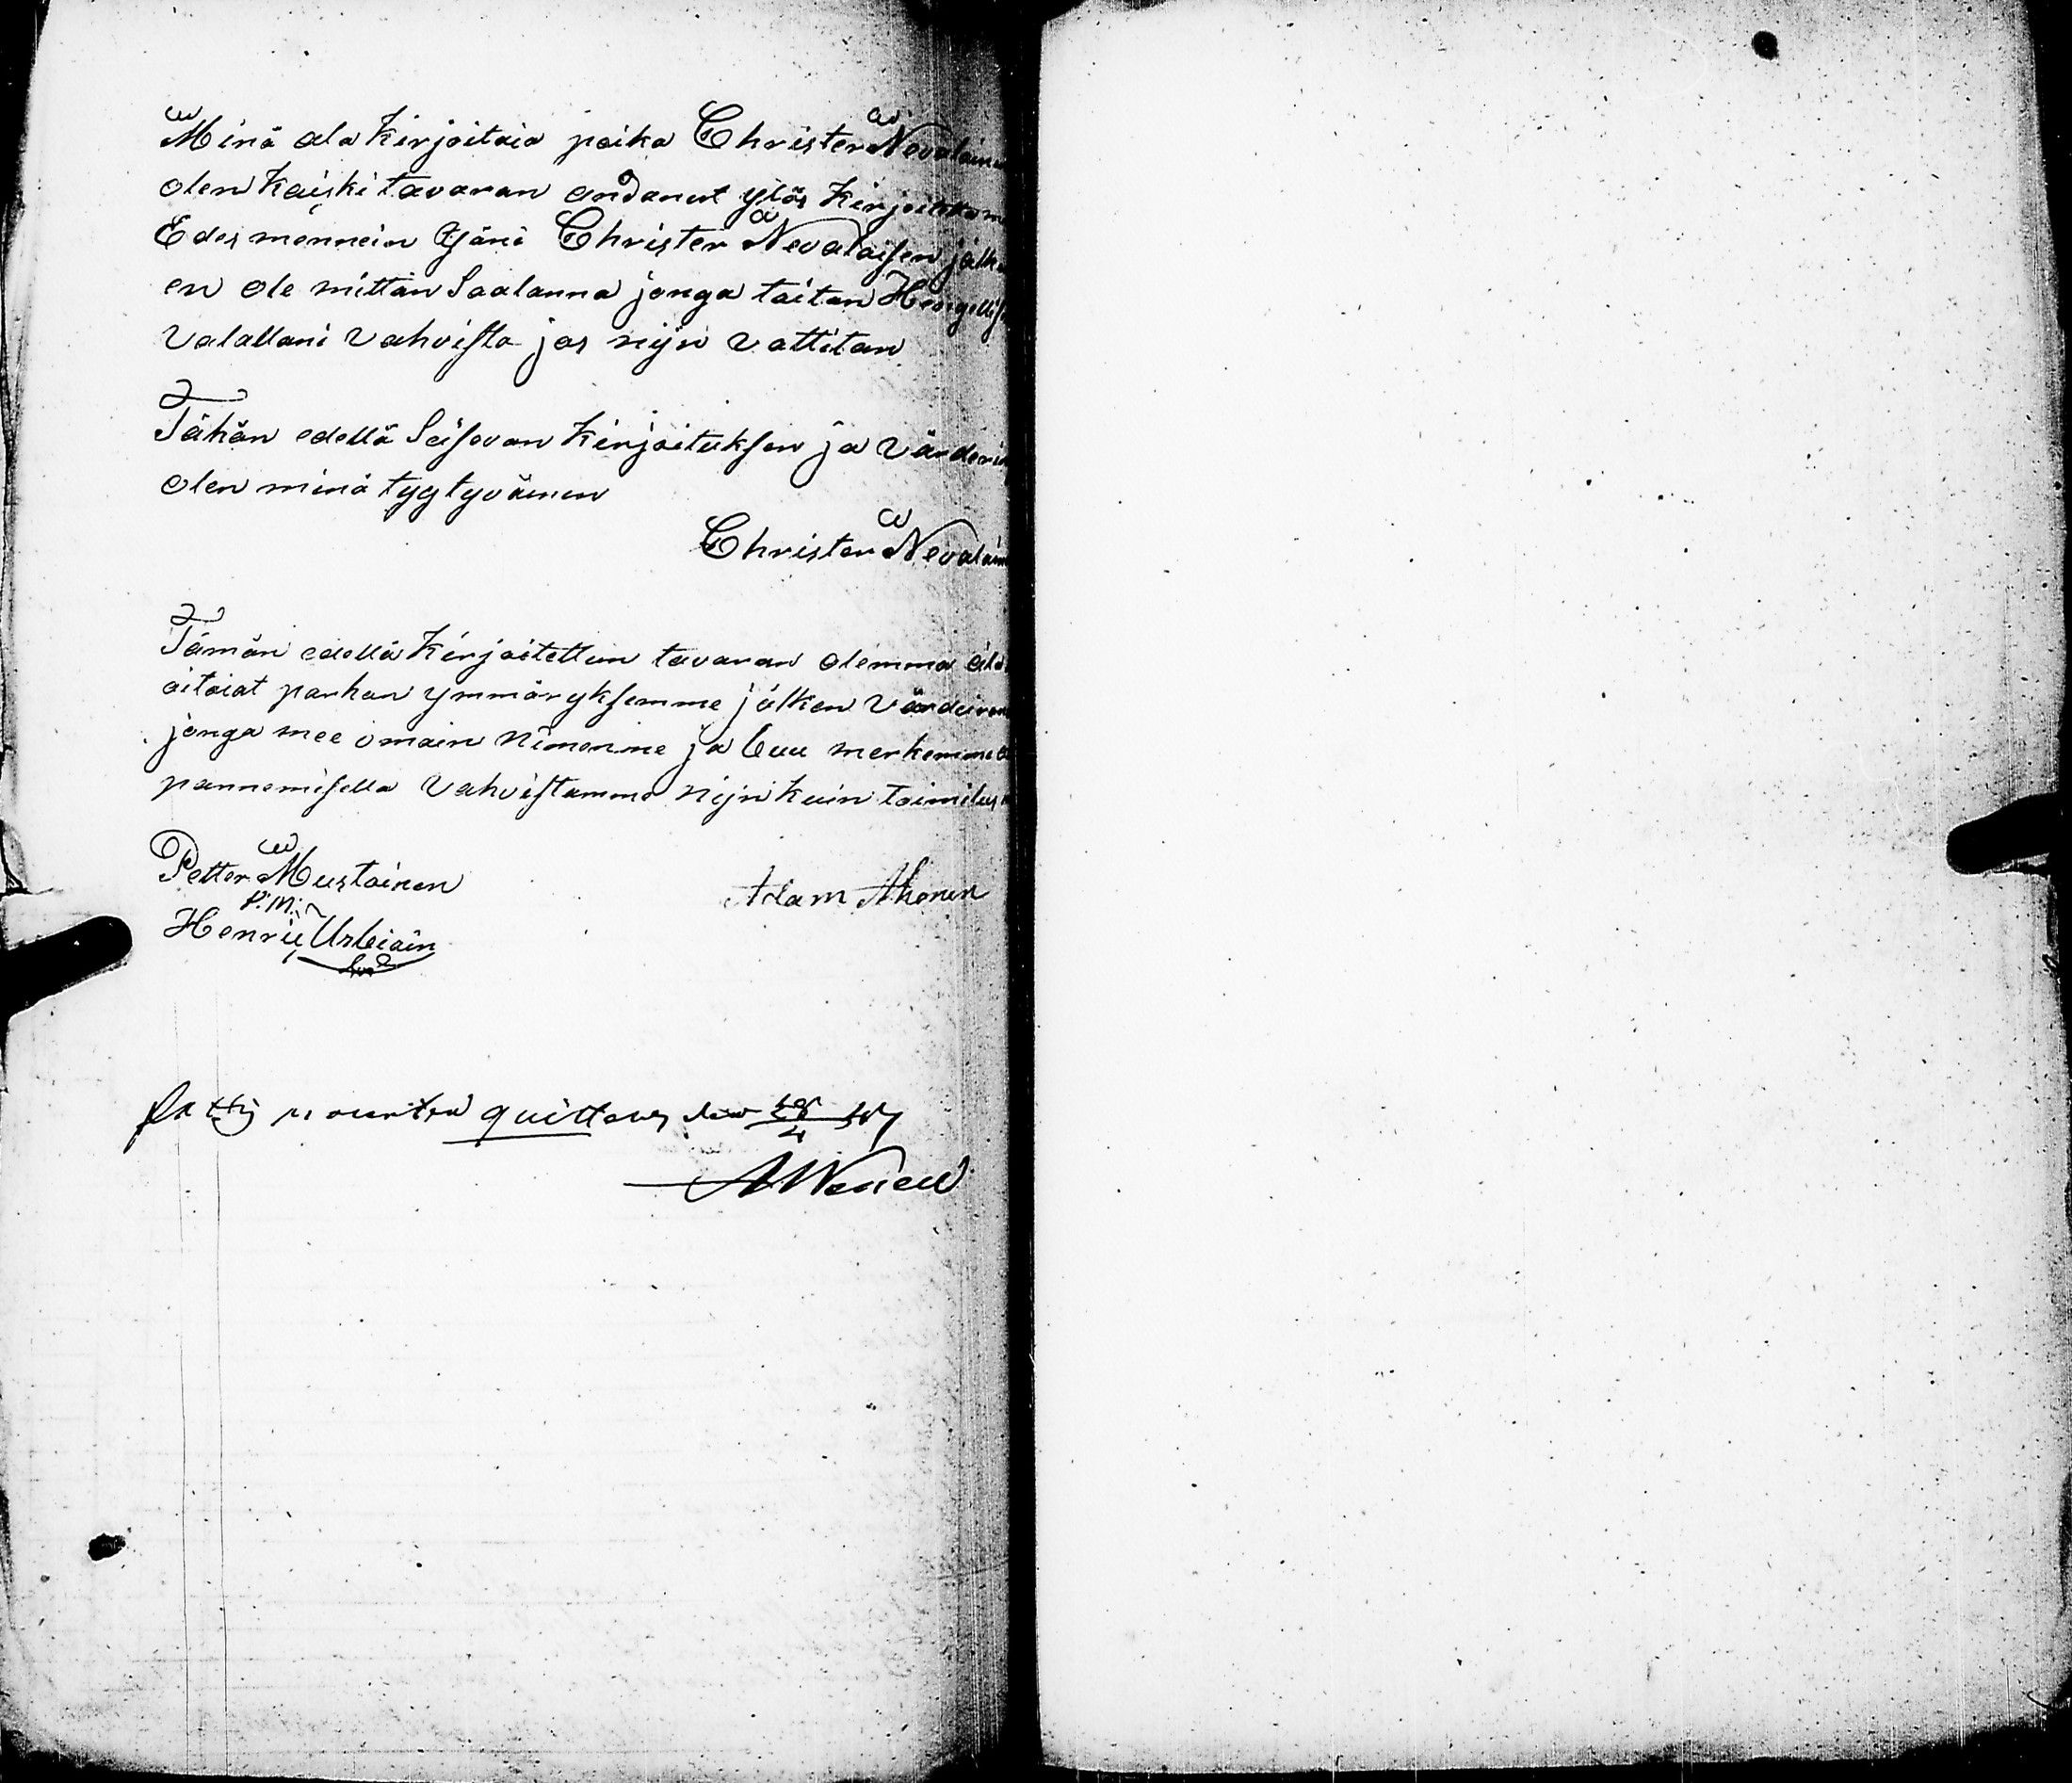 Minä ala Kirjoitaia poika Christer Nevalainen
olen Kaiski tavaran andanut ylös Kirjoitetta
Edes mennein Isäni Christer Nevalaisen jälke
en ole mittän Saalanna jonga taitan Hengellise
Valallani Vahvista jos nijn vattitan
Tähän edellä Seisovan Kirjoituksen ja Värderin
olen minä tyytyväinen
Christer Nevalain
Tämän edellä Kirjoitettun tavaran olemma
oitaiat parhan ymmäryksemme jälken
jonga mee omain Nimenme ja buu merkemme
pannemisella Vahvistamme Nijn Kuin
Petter Mustoinen
P. M.
Henric
Adam Ahonen
quittens den